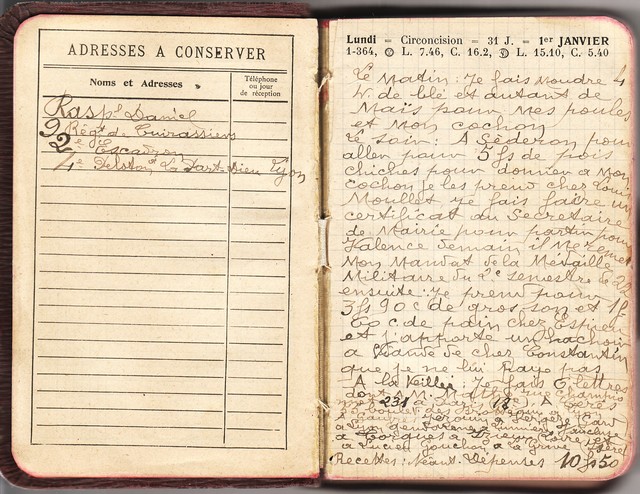 ADRESSES A CONSERVER
Noms et Adresses
Téléphone
ou jour
de réception
Raspl Daniel
9e Régt de Cuirassiers
2e Escadron
4e Peloton La Part-Dieu Lyon
Lundi = Circoncision = 31 J. = 1er JANVIER
1-364, L. 7.46, C. 16.2, L. 15.10, C. 5.40
Le Matin: Je fais moudre 4
de blé et autant de
Maïs pour mes poules
et mon cochon
Le soir: A Séderon pour
aller 5 fs de pois
chiches pour donner a Mon
cochon je les prend chez Louis
Moullet je fais faire un
certificat au Secretaire
de Mairie pour partir pour
Valence demain il me remet
Mon Mandat de la Médaille
Militaire du 2e semestre de 22
ensuite: Je prend pour
3 fs 90 c de gros son et 1 f
60 c de pain chez Espieu
et j'apporte un hachoir
a viande de chez Constantin
que je ne lui paye pas
A la Veillée: Je fais 6 lettres
dont M.
231 a 18
a
Recettes: Néant. Dépenses 10 fs 50